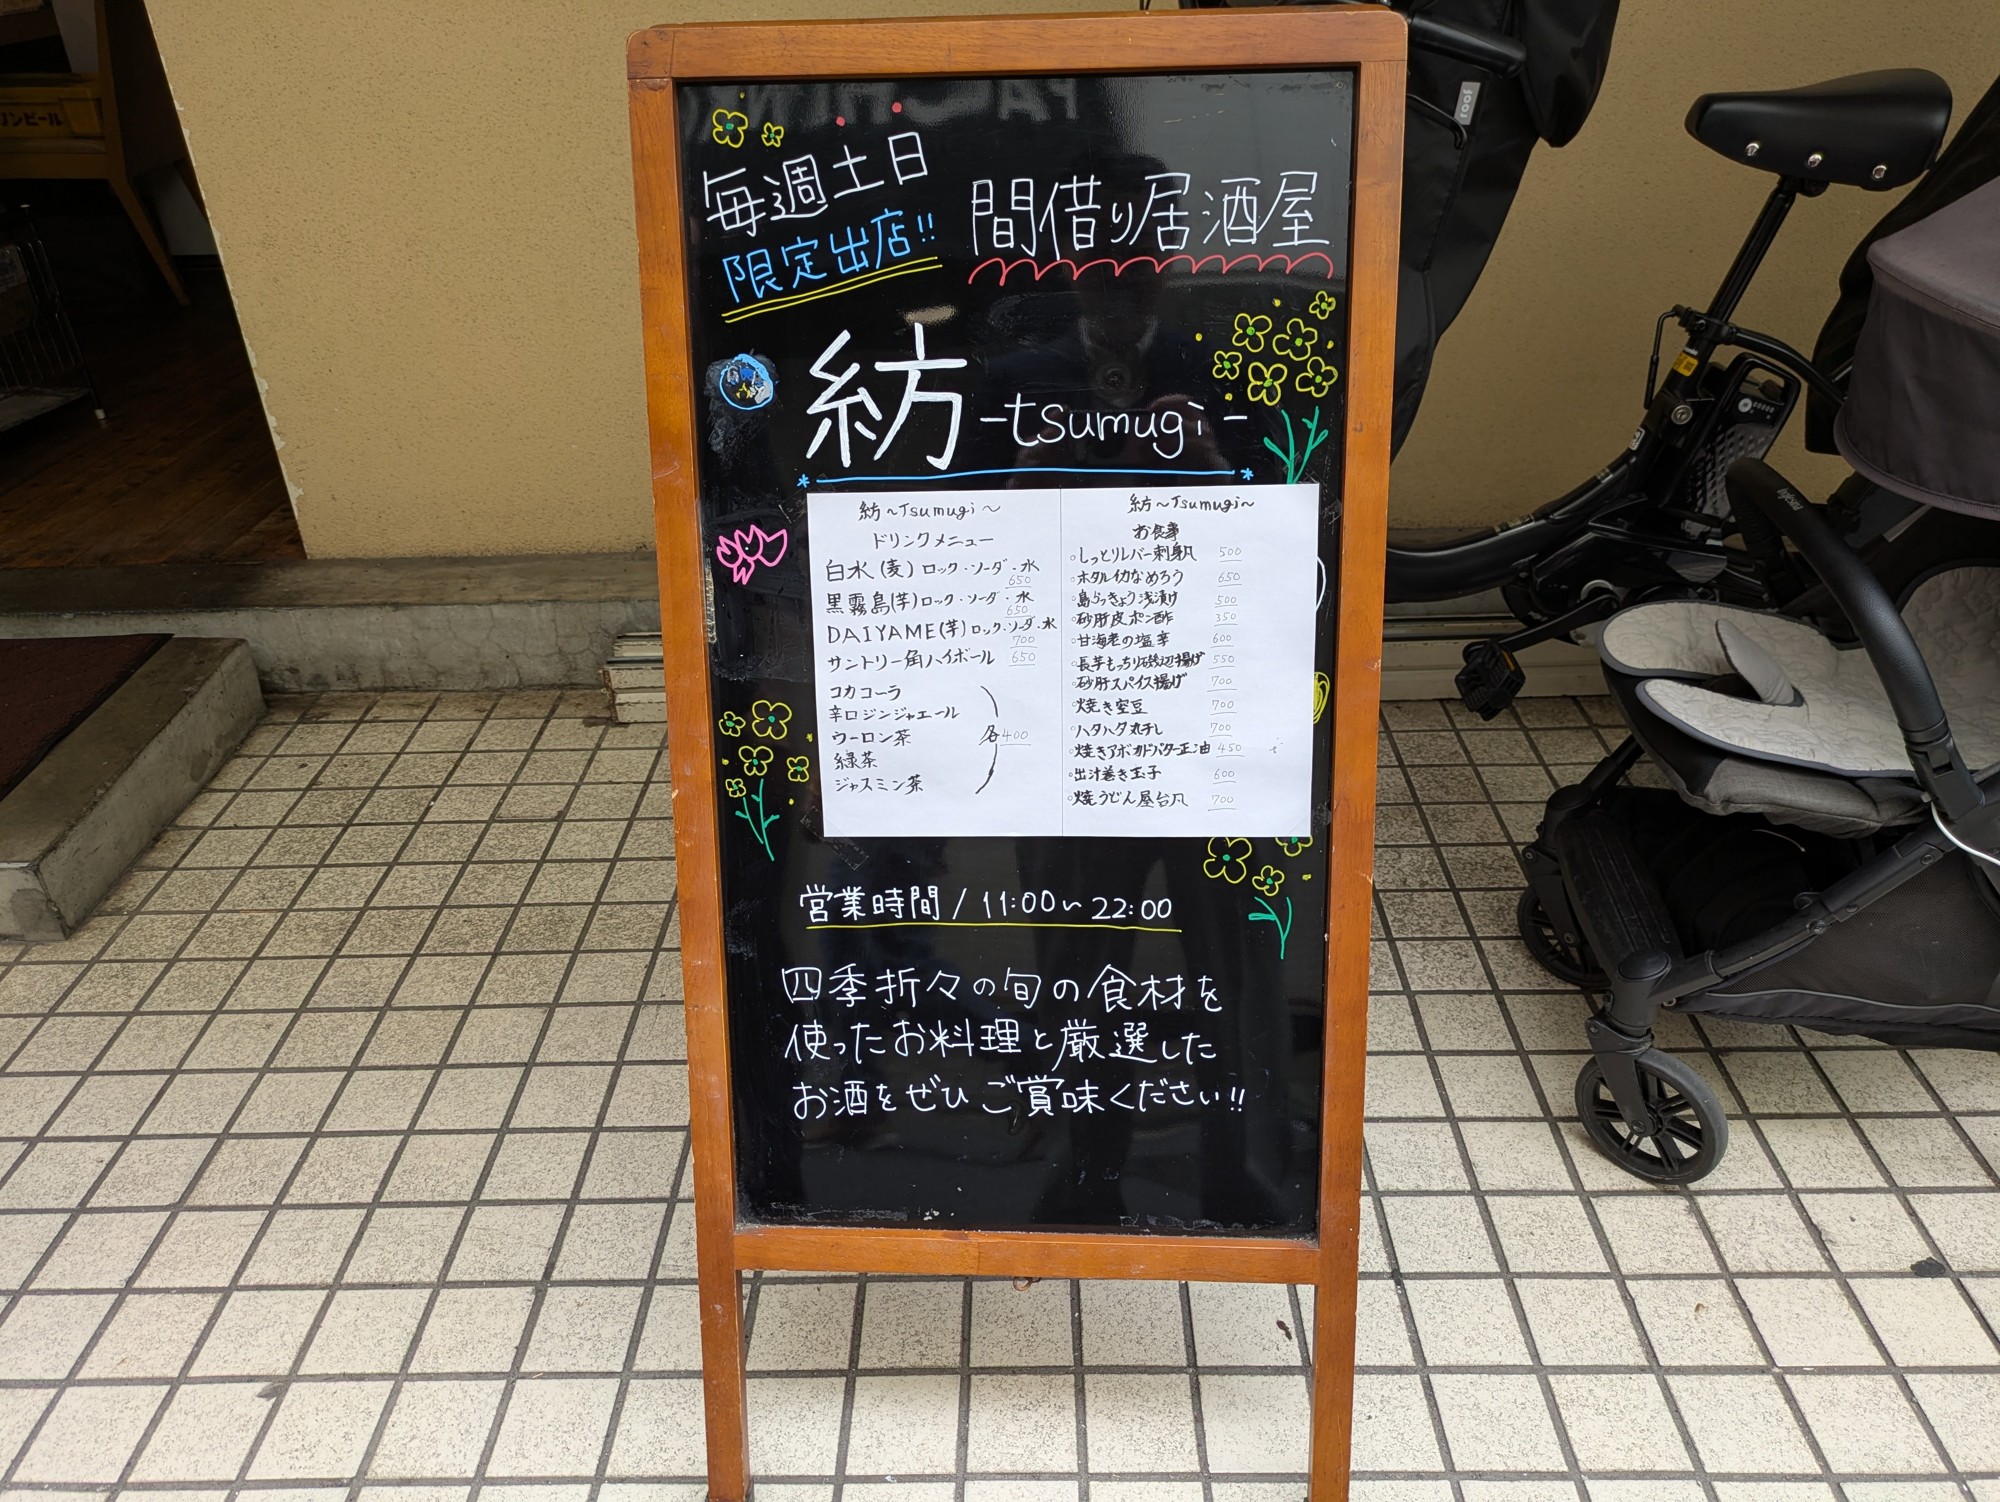 毎週土日
限定出店!!
間借り居酒屋
紡 -tsumugi-
紡〜Tsumugi〜
ドリンクメニュー
白水(麦)ロック・ソーダ・水
650
黒霧島(芋)ロック・ソーダ・水
650
DAIYAME(芋)ロック・ソーダ・水
700
サントリー角ハイボール 650
コカコーラ
辛口ジンジャエール
ウーロン茶
緑茶
ジャスミン茶
各400
紡〜Tsumugi〜
お食事
○しっとりレバー刺身風 500
○ホタルイカなめろう 650
○島らっきょう浅漬け 500
○砂肝皮ポン酢 350
○甘海老の塩辛 600
○長芋もっちり磯辺揚げ 550
○砂肝スパイス揚げ 700
○焼き空豆 700
○ハタハタ丸干し 700
○焼きアボカドバター正油 450
○出汁巻き玉子 600
○焼うどん屋台風 700
営業時間 / 11:00〜22:00
四季折々の旬の食材を
使ったお料理と厳選した
お酒をぜひご賞味ください!!
リンビール